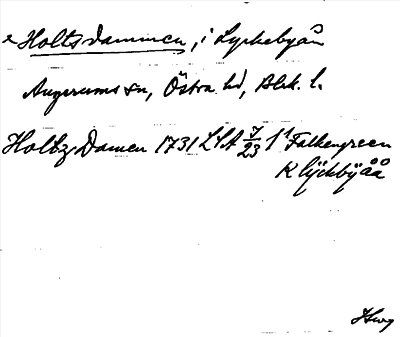 Holtsdammen, i Lyckebyån
Augerums sn, Östra hd, Blek. l.
Holtz Damen 1731 LSA 7/23 1¹ Falkengreen
K lÿckbÿåå